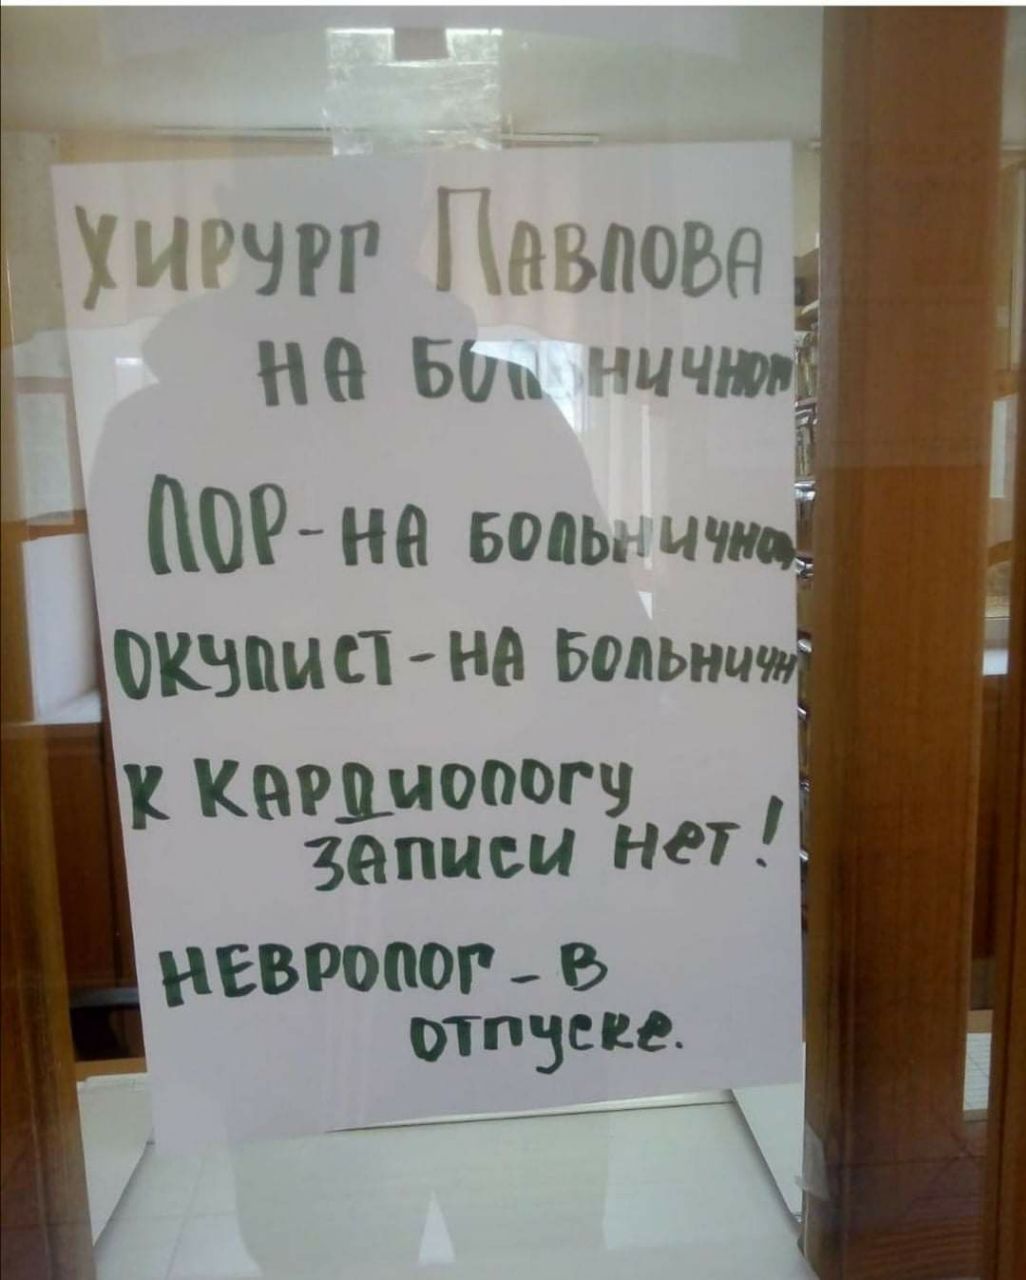 Хирург Павлова
на больничном
ЛОР-на больничном
Окулист-на больничн
к кардиологу
записи нет!
Невролог-в
отпуске.